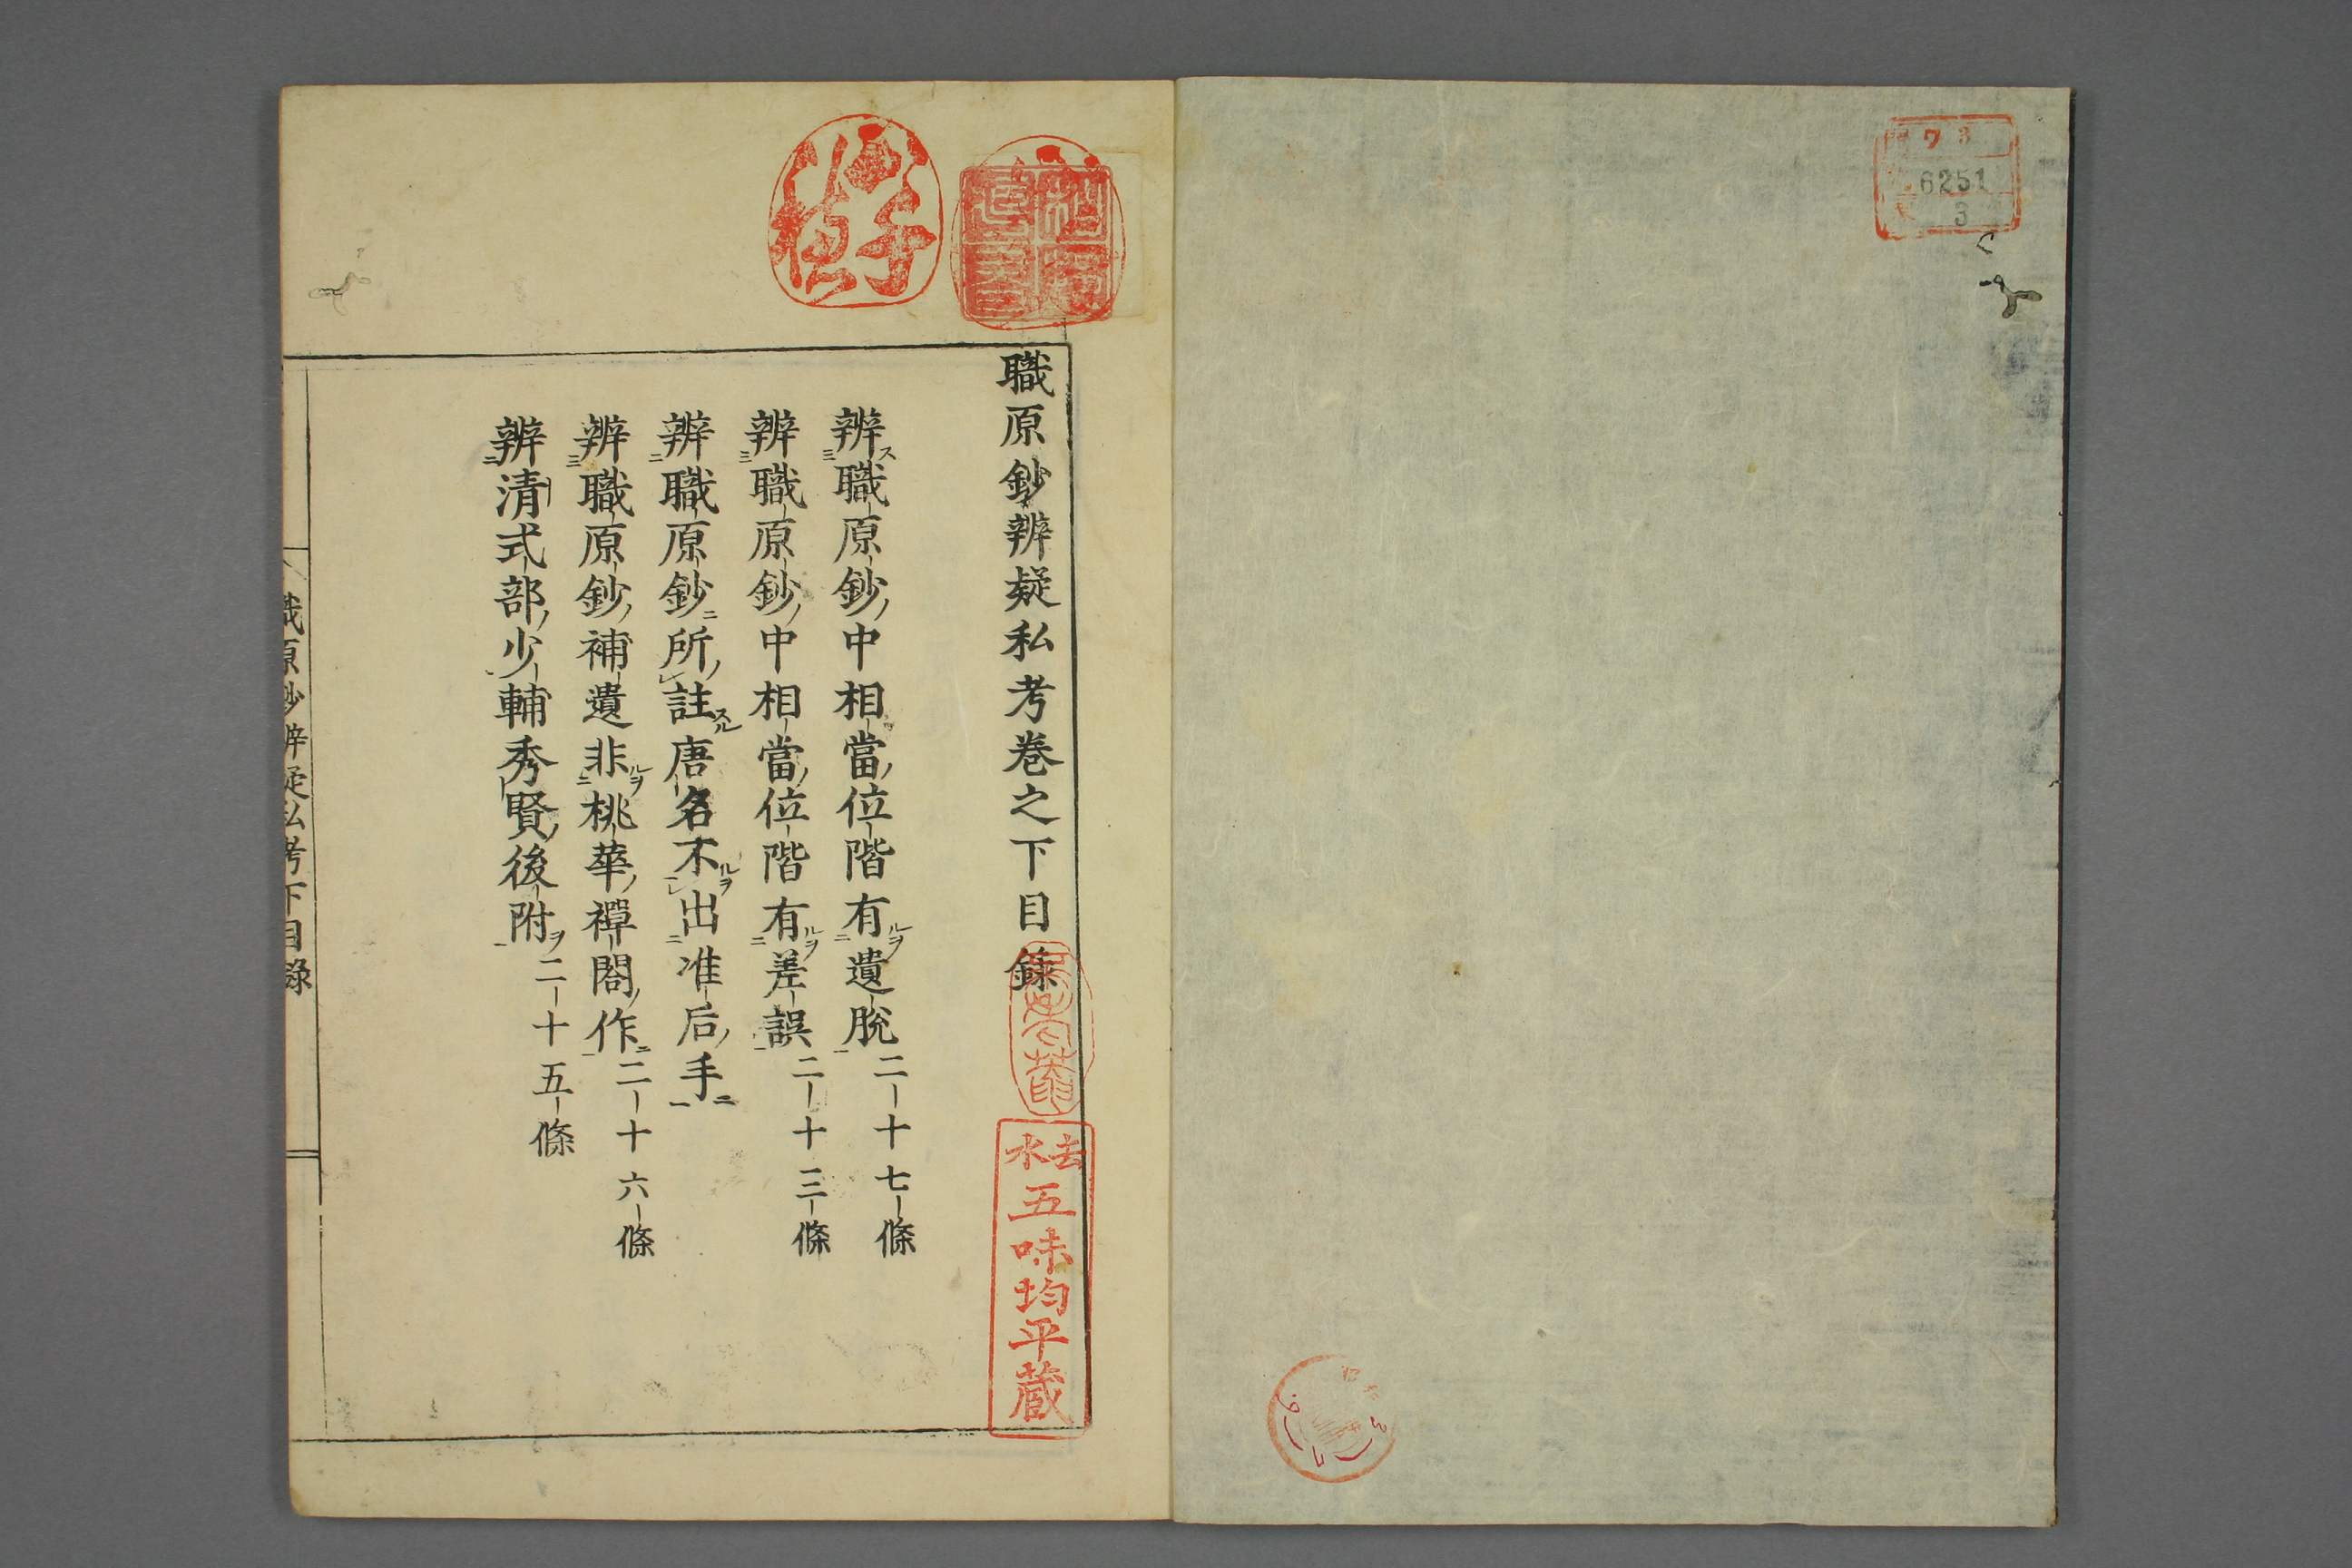 ワ 3
6251
3
職原鈔辨疑私考巻之下目録
辨職原鈔中相當位階有遺脱二十七條
辨職原鈔中相當位階有差誤二十三條
辨職原鈔所註唐名不出准后手
辨職原鈔補遺非桃華禪閤作二十六條
辨清式部少輔秀賢後附二十五條
職原鈔辨疑私考下目録
五味均平蔵